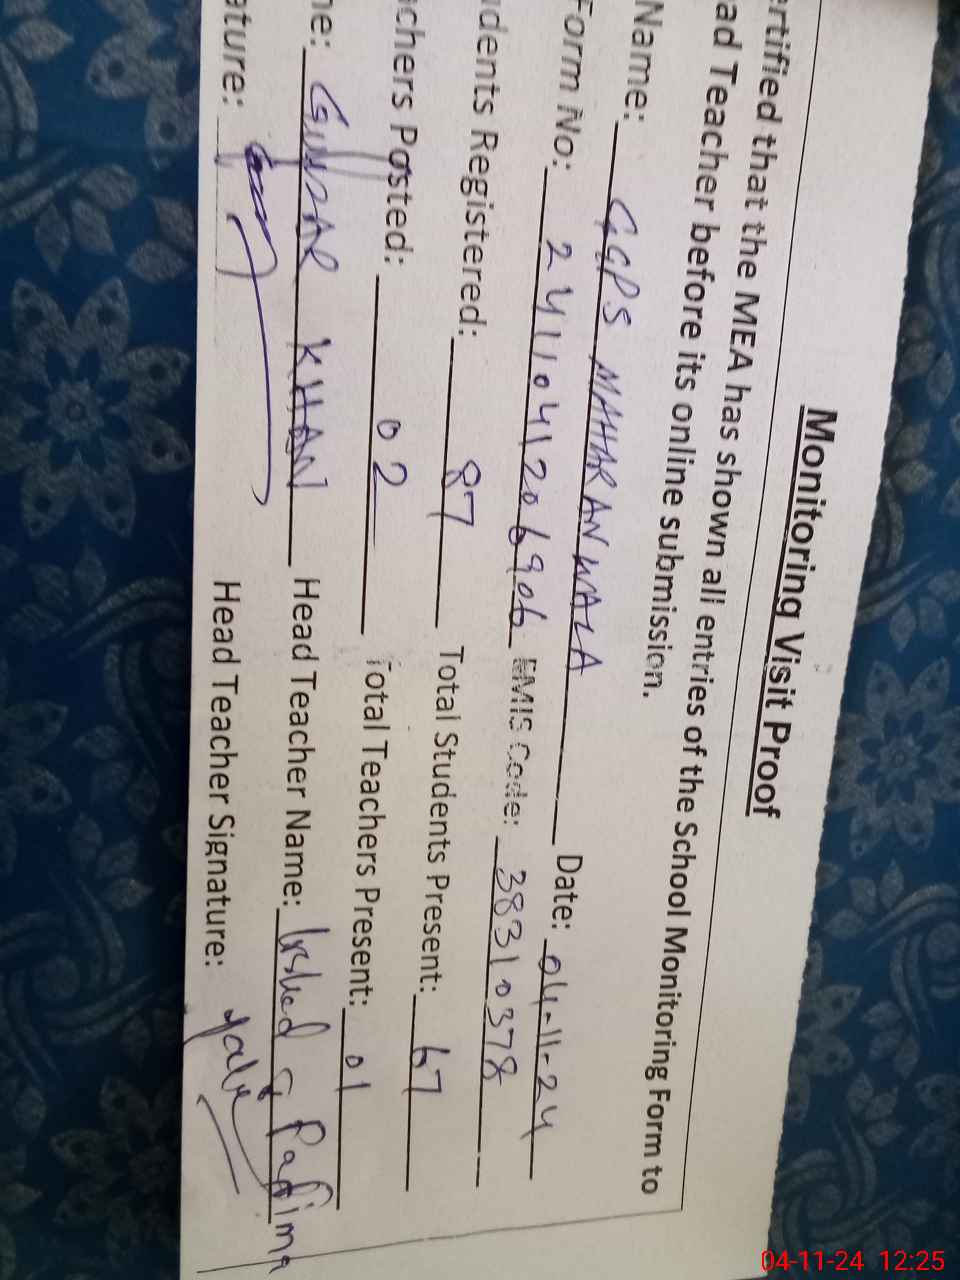 Monitoring Visit Proof
ertified that the MEA has shown all entries of the School Monitoring Form to
ad Teacher before its online submission.
Name: GGPS MAHARANWALA Date: 04-11-24
Form No: 2411041206906 EMIS Code: 38310378
dents Registered: 87 Total Students Present: 67
chers Posted: 02 Total Teachers Present: 01
ne: GULZAR KHAN Head Teacher Name: Irshad Fatima
ature: Head Teacher Signature:
04-11-24 12:25